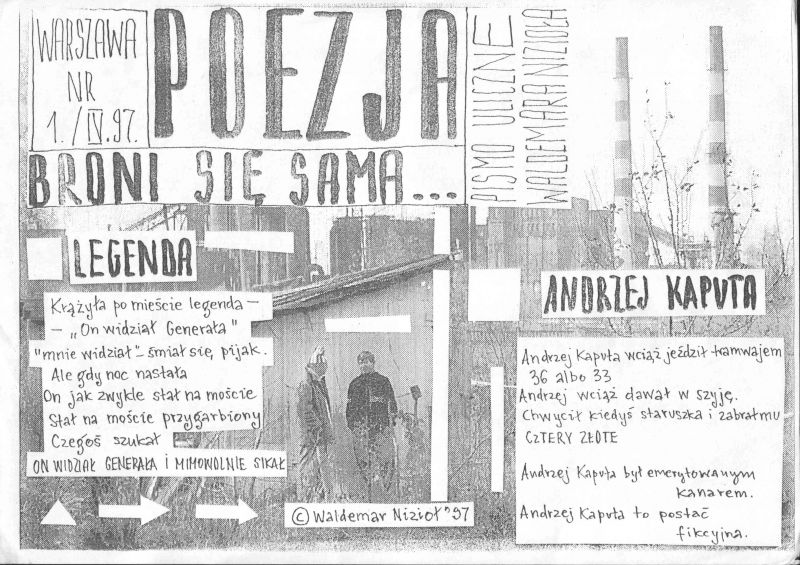 WARSZAWA
NR
1./IV.97.
POEZJA
BRONI SIĘ SAMA...
PISMO ULICZNE
WALDEMARA NIZIOŁA
LEGENDA
Krążyła po mieście legenda –
– „On widział Generała"
"mnie widział" – śmiał się, pijak.
Ale gdy noc nastała
On jak zwykle stał na moście
Stał na moście przygarbiony
Czegoś szukał
ON WIDZIAŁ GENERAŁA I MIMOWOLNIE SIKAŁ
© Waldemar Nizioł '97
ANDRZEJ KAPUTA
Andrzej Kaputa wciąż jeździł tramwajem
36 albo 33
Andrzej wciąż dawał w szyję.
Chwycił kiedyś staruszka i zabrał mu
CZTERY ZŁOTE
Andrzej Kaputa był emerytowanym
kanarem.
Andrzej Kaputa to postać
fikcyjna.